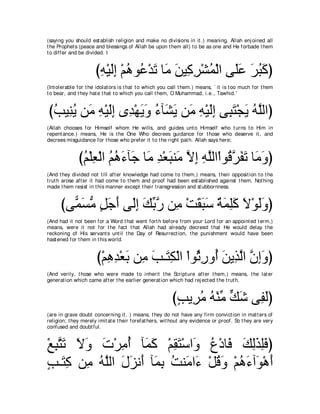 (saying you should establish religion and make no divisions in it.) meaning, Allah enjoined all
the Prophets (peace and blessings of Allah be upon them all) to be as one and He forbade them
to differ and be divided. I
﴿كَبُرَ عَلَى الْمُشْرِكِينَ مَا تَدْعُوهُمْ إِلَيْهِ﴾
(Intolerable for the idolators is that to which you call them.) means, `it is too much for them
to bear, and they hate that to which you call them, O Muhammad, i.e., Tawhid.'
﴿اللَّهُ يَجْتَبِى إِلَيْهِ مَن يَشَآءُ وَيَهْدِى إِلَيْهِ مَن يُنِيبُ﴾
(Allah chooses for Himself whom He wills, and guides unto Himself who turns to Him in
repentance.) means, He is the One Who decrees guidance for those who deserve it, and
decrees misguidance for those who prefer it to the right path. Allah says here:
﴿وَمَا تَفَرَّقُواْ إِلاَّ مِن بَعْدِ مَا جَآءَهُمُ الْعِلْمُ﴾
(And they divided not till after knowledge had come to them,) means, their opposition to the
truth arose after it had come to them and proof had been established against them. Nothing
made them resist in this manner except their transgression and stubbornness.
﴿وَلَوْلاَ كَلِمَةٌ سَبَقَتْ مِن رَّبِّكَ إِلَى أَجَلٍ مُّسَمًّى﴾
(And had it not been for a Word that went forth before from your Lord for an appointed term,)
means, were it not for the fact that Allah had already decreed that He would delay the
reckoning of His servants until the Day of Resurrection, the punishment would have been
hastened for them in this world.
﴿وَإِنَّ الَّذِينَ أُورِثُواْ الْكِتَـبَ مِن بَعْدِهِمْ﴾
(And verily, those who were made to inherit the Scripture after them,) means, the later
generation which came after the earlier generation which had rejected the truth.
﴿لَفِى شَكٍّ مِّنْهُ مُرِيبٍ﴾
(are in grave doubt concerning it.) means, they do not have any firm conviction in matters of
religion; they merely imitate their forefathers, without any evidence or proof. So they are very
confused and doubtful.
﴿فَلِذَلِكَ فَادْعُ وَاسْتَقِمْ كَمَآ أُمِرْتَ وَلاَ تَتَّبِعْ
أَهْوَآءَهُمْ وَقُلْ ءَامَنتُ بِمَآ أَنزَلَ اللَّهُ مِن كِتَـبٍ